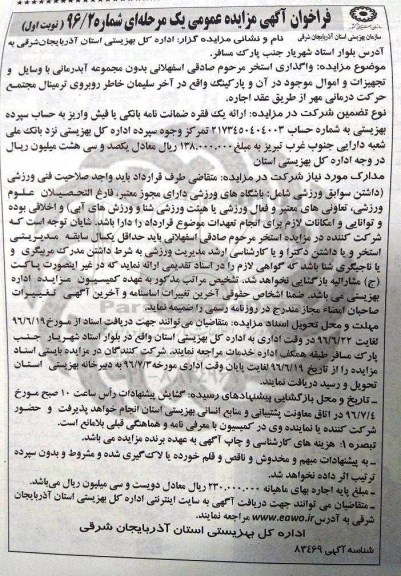 فراخوان آگهی مزایده عمومی یک مرحله‌ای شماره ۹۶/۲ ( نوبت اول)
سازمان بهزیستی استان آذربایجان شرقی
نام و نشانی مزایده گزار: اداره کل بهزیستی استان آذربایجان‌شرقی به
آدرس بلوار استاد شهریار جنب پارک مسافر.
موضوع مزایده: واگذاری استخر مرحوم صادقی اسفهلانی بدون مجموعه آبدرمانی با وسایل و
تجهیزات و اموال موجود در آن و پارکینگ واقع در آخر سلیمان خاطر روبروی ترمینال مجتمع
حرکت درمانی مهر از طریق عقد اجاره.
نوع تضمین شرکت در مزایده: ارائه یک فقره ضمانت نامه بانکی یا فیش واریز به حساب سپرده
بهزیستی به شماره حساب ۲۱۷۳۴۵۰۴۰۴۰۰۳ تمرکز وجوه سپرده اداره کل بهزیستی نزد بانک ملی
شعبه دارایی جنوب غرب تبریز به مبلغ ۱۳۸،۰۰۰،۰۰۰ ریال معادل یکصد و سی هشت میلیون ریال
در وجه اداره کل بهزیستی استان
مدارک مورد نیاز شرکت در مزایده: متقاضی طرف قرارداد باید واجد صلاحیت فنی ورزشی
(داشتن سوابق ورزشی شامل: باشگاه های ورزشی دارای مجوز معتبر، فارغ التحصیلان علوم
ورزشی، تعاونی های معتبر و فعال ورزشی یا هیئت ورزشی شنا و ورزش های آبی و اخلاقی بوده
و توانایی و امکانات لازم برای انجام تعهدات موضوع قرارداد را دارا باشد. شایان توجه است که
شرکت کننده در مزایده استخر مرحوم صادقی اسفهلانی باید حداقل یکسال سابقه مدیریتی
استخر و یا داشتن دکترا و یا کارشناسی ارشد مدیریت ورزشی به شرط داشتن مدرک مربیگری و
یا ناجیگری شنا باشد که گواهی لازم را در اسناد تقدیمی ارائه نماید که در غیر اینصورت پاکت
(ج) مشارالیه بازگشایی نخواهد شد. تشخیص مراتب مذکور به عهده کمیسیون مزایده اداره
بهزیستی می باشد. ضمنا اشخاص حقوقی آخرین تغییرات اساسنامه و آخرین آگهی تغییرات
صاحبان امضاء مجاز مندرج در روزنامه رسمی را ضمیمه نماید.
مهلت و محل تحویل اسناد مزایده: متقاضیان می‌توانند جهت دریافت اسناد از مورخ ۹۶/۶/۱۹
لغایت ۹۶/۶/۲۲ در وقت اداری به اداره کل بهزیستی استان واقع در بلوار استاد شهریار جنب
پارک مسافر طبقه همکف اداره خدمات مراجعه نمایند. شرکت کنندگان در مزایده بایستی اسناد
مزایده را از تاریخ ۹۶/۶/۱۹ لغایت پایان وقت اداری مورخه ۹۶/۷/۳ به دبیرخانه بهزیستی استان
تحویل و رسید دریافت نمایند.
ـ تاریخ و محل بازگشایی پیشنهادهای رسیده: گشایش پیشنهادات راس ساعت ۱۰ صبح مورخ
۹۶/۷/۴ در اتاق معاونت پشتیبانی و منابع انسانی بهزیستی استان انجام خواهد پذیرفت و حضور
شرکت کننده یا نماینده وی در کمیسیون با معرفی نامه و هماهنگی قبلی بلامانع است.
تبصره ۱: هزینه های کارشناسی و چاپ آگهی به عهده برنده مزایده می باشد.
ـ به پیشنهادات مبهم و مخدوش و ناقص و قلم خورده یا لاک‌گیری شده و مشروط و بدون سپرده
ترتیب اثر داده نخواهد شد.
ـ مبلغ پایه اجاره بهای ماهیانه ۲۳۰،۰۰۰،۰۰۰ ریال معادل دویست و سی میلیون ریال می‌باشد.
ـ متقاضیان می توانند جهت دریافت آگهی به سایت اینترنتی اداره کل بهزیستی استان آذربایجان
شرقی به آدرس www.eawo.ir مراجعه نمایند.
اداره کل بهزیستی استان آذربایجان شرقی
شناسه آگهی ۸۳۴۶۹